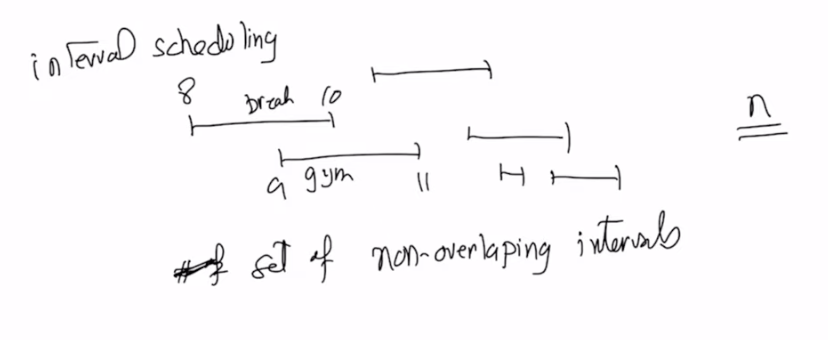 interval scheduling
8 break 10
n
9 gym 11
set of non-overlaping intervals